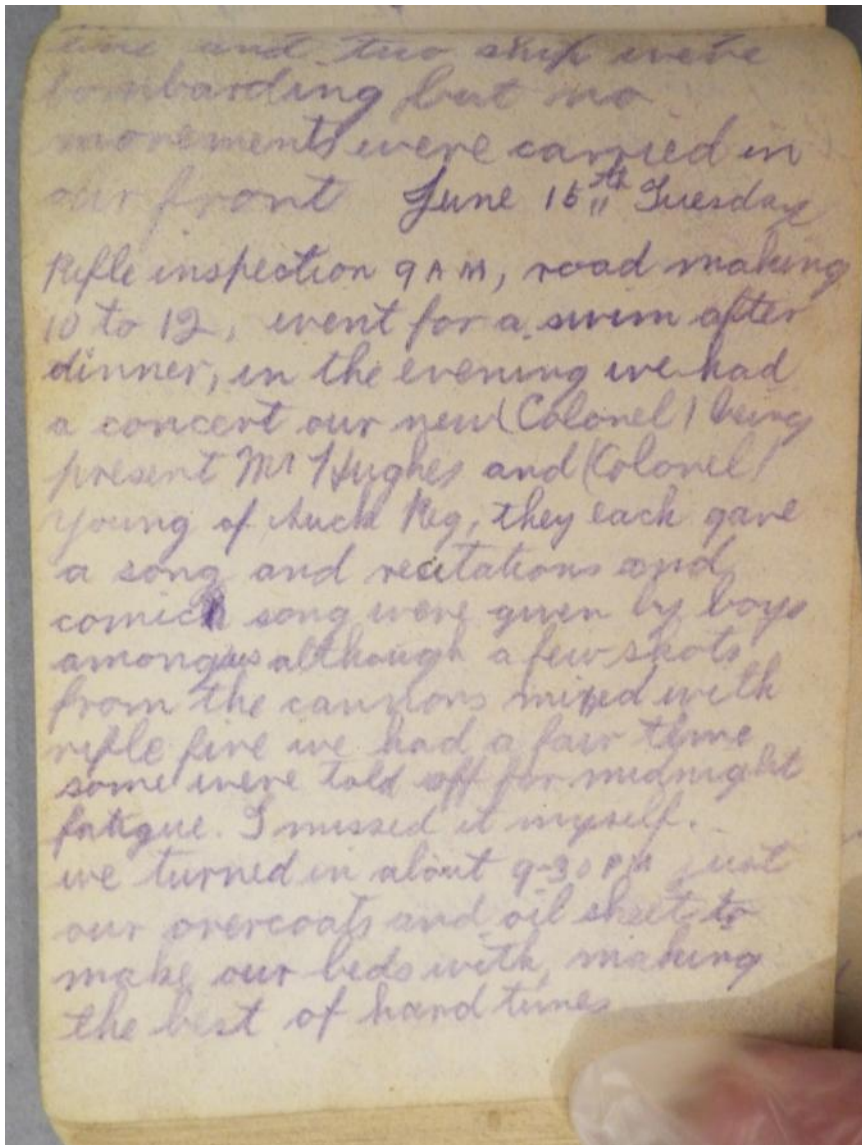 time and two ships were
bombarding but no
movements were carried in
our front June 15th Tuesday
Rifle inspection 9 AM, road making
10 to 12, went for a swim after
dinner, in the evening we had
a concert our new (Colonel) being
present Mr Hughes and (Colonel)
Young of Auck Reg, they each gave
a song and recitations and
comic song were given by boys
among us although a few shots
from the cannons mixed with
rifle fire we had a fair time
some were told off for midnight
fatigue. I missed it myself.
we turned in about 9-30 PM just
our overcoats and oil sheet to
make our beds with, making
the best of hard times